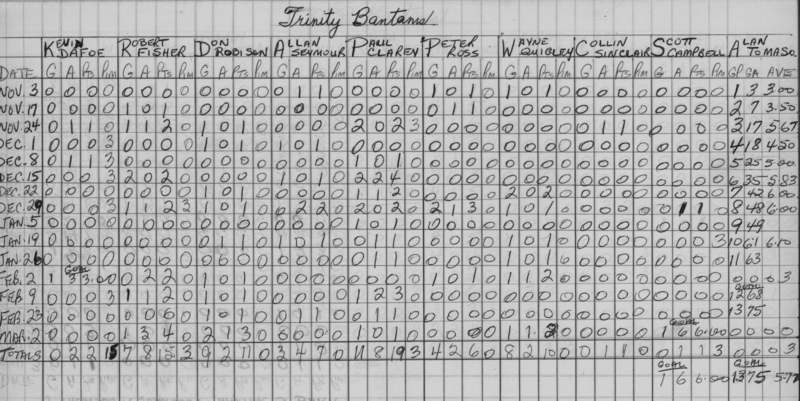 Trinity Bantams
KEVIN DAFOE ROBERT FISHER DON ROBISON ALLAN SEYMOUR PAUL CLAREY PETER ROSS WAYNE QUIGLEY COLLIN SINCLAIR SCOTT CAMPBELL ALAN TOMASO
DATE G A Pts Pim G A Pts Pim G A Pts Pim G A Pts Pim G A Pts Pim G A Pts Pim G A Pts Pim G A Pts Pim G A Pts Pim GP GA AVE
NOV. 3 0 0 0 0 0 0 0 0 0 0 0 0 0 1 1 0 0 0 0 0 1 0 1 0 1 0 1 0 0 0 0 0 0 0 0 0 1 3 3.00
NOV. 17 0 0 0 0 1 0 1 0 0 0 0 0 0 0 0 0 0 0 0 0 0 1 1 0 0 0 0 0 0 0 0 0 0 0 0 0 2 7 3.50
NOV. 24 0 1 1 0 1 1 2 0 1 0 1 0 0 0 0 0 2 0 2 3 0 0 0 0 0 0 0 0 0 1 1 0 0 0 0 0 3 17 5.67
DEC. 1 0 0 0 3 0 0 0 0 1 0 1 0 1 0 1 0 0 0 0 0 0 0 0 0 0 0 0 0 0 0 0 0 0 0 0 0 4 18 4.50
DEC. 8 0 1 1 3 0 0 0 0 0 0 0 0 0 0 0 0 1 0 1 0 0 0 0 0 0 0 0 0 0 0 0 0 0 0 0 0 5 25 5.00
DEC. 15 0 0 0 3 2 0 2 0 0 0 0 0 1 0 1 0 2 2 4 0 0 0 0 0 0 0 0 0 0 0 0 0 0 0 0 0 6 35 5.83
DEC. 22 0 0 0 0 0 0 0 0 1 0 1 0 0 0 0 0 1 1 2 0 0 0 0 0 2 0 2 0 0 0 0 0 0 0 0 0 7 42 6.00
DEC. 29 0 0 0 3 1 1 2 3 1 0 1 0 0 2 2 0 2 0 2 0 2 1 3 0 1 0 1 0 0 0 0 0 0 1 1 0 8 48 6.00
JAN. 5 0 0 0 0 0 0 0 0 0 0 0 0 0 0 0 0 1 0 1 0 0 0 0 0 0 0 0 0 0 0 0 0 0 0 0 0 9 49
JAN. 19 0 0 0 0 0 0 0 0 0 1 1 0 1 0 1 0 0 1 1 0 0 0 0 0 1 0 1 0 0 0 0 0 0 0 0 3 10 61 6.10
JAN. 26 0 0 0 0 0 0 0 0 0 0 0 0 0 0 0 0 0 1 1 0 0 0 0 0 1 0 1 0 0 0 0 0 0 0 0 0 11 63
Goal
FEB. 2 1 3 3.00 0 2 2 0 1 0 1 0 0 0 0 0 0 0 0 0 1 0 1 0 1 1 2 0 0 0 0 0 0 0 0 0 0 0 0 3
Goal
FEB. 9 0 0 0 3 1 1 2 0 1 0 1 0 0 0 0 0 1 2 3 0 0 0 0 0 0 0 0 0 0 0 0 0 0 0 0 0 12 68
FEB. 23 0 0 0 0 0 0 0 0 1 0 1 0 0 1 1 0 0 0 0 0 0 0 0 0 0 0 0 0 0 0 0 0 0 0 0 0 13 75
Goal
MAR. 2 0 0 0 0 1 3 4 0 2 1 3 0 0 0 0 0 1 0 1 0 0 0 0 0 1 1 2 0 0 0 0 0 1 6 6.00 0 0 0 0
TOTALS 0 2 2 15 7 8 15 3 9 2 11 0 3 4 7 0 11 8 19 3 4 2 6 0 8 2 10 0 0 1 1 0 0 1 1 3 0 0 0 3
Goal Goal
1 6 6.00 13 75 5.77